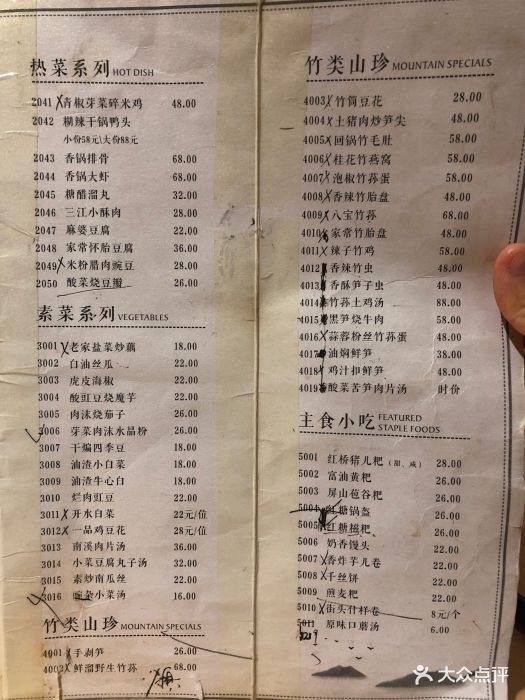 热菜系列 HOT DISH
2041 青椒芽菜碎米鸡 48.00
2042 糊辣干锅鸭头
小份58元\大份88元
2043 香锅排骨 68.00
2044 香锅大虾 68.00
2045 糖醋溜丸 32.00
2046 三江小酥肉 28.00
2047 麻婆豆腐 22.00
2048 家常怀胎豆腐 36.00
2049 米粉腊肉豌豆 28.00
2050 酸菜烧豆瓣 22.00
素菜系列 VEGETABLES
3001 老家盐菜炒藕 18.00
3002 白油丝瓜 22.00
3003 虎皮海椒 22.00
3004 酸豇豆烧魔芋 22.00
3005 肉沫烧茄子 26.00
3006 芽菜肉沫水晶粉 26.00
3007 干煸四季豆 18.00
3008 油渣小白菜 18.00
3009 油渣牛心白 18.00
3010 烂肉豇豆 22.00
3011 开水白菜 22元/位
3012 一品鸡豆花 28元/位
3013 南溪肉片汤 36.00
3014 小菜豆腐丸子汤 32.00
3015 素炒南瓜丝 22.00
3016 豌杂小菜汤 16.00
竹类山珍 MOUNTAIN SPECIALS
4001 手剥笋 26.00
4002 鲜溜野生竹荪 68.00
竹类山珍 MOUNTAIN SPECIALS
4003 竹筒豆花 28.00
4004 土猪肉炒笋尖 48.00
4005 回锅竹毛肚 58.00
4006 桂花竹燕窝 58.00
4007 泡椒竹荪蛋 58.00
4008 香辣竹胎盘 48.00
4009 八宝竹荪 68.00
4010 家常竹胎盘 48.00
4011 辣子竹鸡 58.00
4012 香辣竹虫 48.00
4013 香酥笋子虫 48.00
4014 竹荪土鸡汤 88.00
4015 黑笋烧牛肉 58.00
4016 蒜蓉粉丝竹荪蛋 48.00
4017 油焖鲜笋 38.00
4018 鸡汁扣鲜笋 48.00
4019 酸菜苦笋肉片汤 时价
主食小吃 FEATURED STAPLE FOODS
5001 红桥猪儿粑（甜、咸） 28.00
5002 富油黄粑 26.00
5003 屏山苞谷粑 26.00
5004 红糖锅盔 26.00
5005 红糖糍粑 26.00
5006 奶香馒头 22.00
5007 香炸芋儿卷 22.00
5008 千丝饼 22.00
5009 煎麦粑 22.00
5010 街头什样卷 8元/个
5011 原味口蘑汤 6.00
大众点评